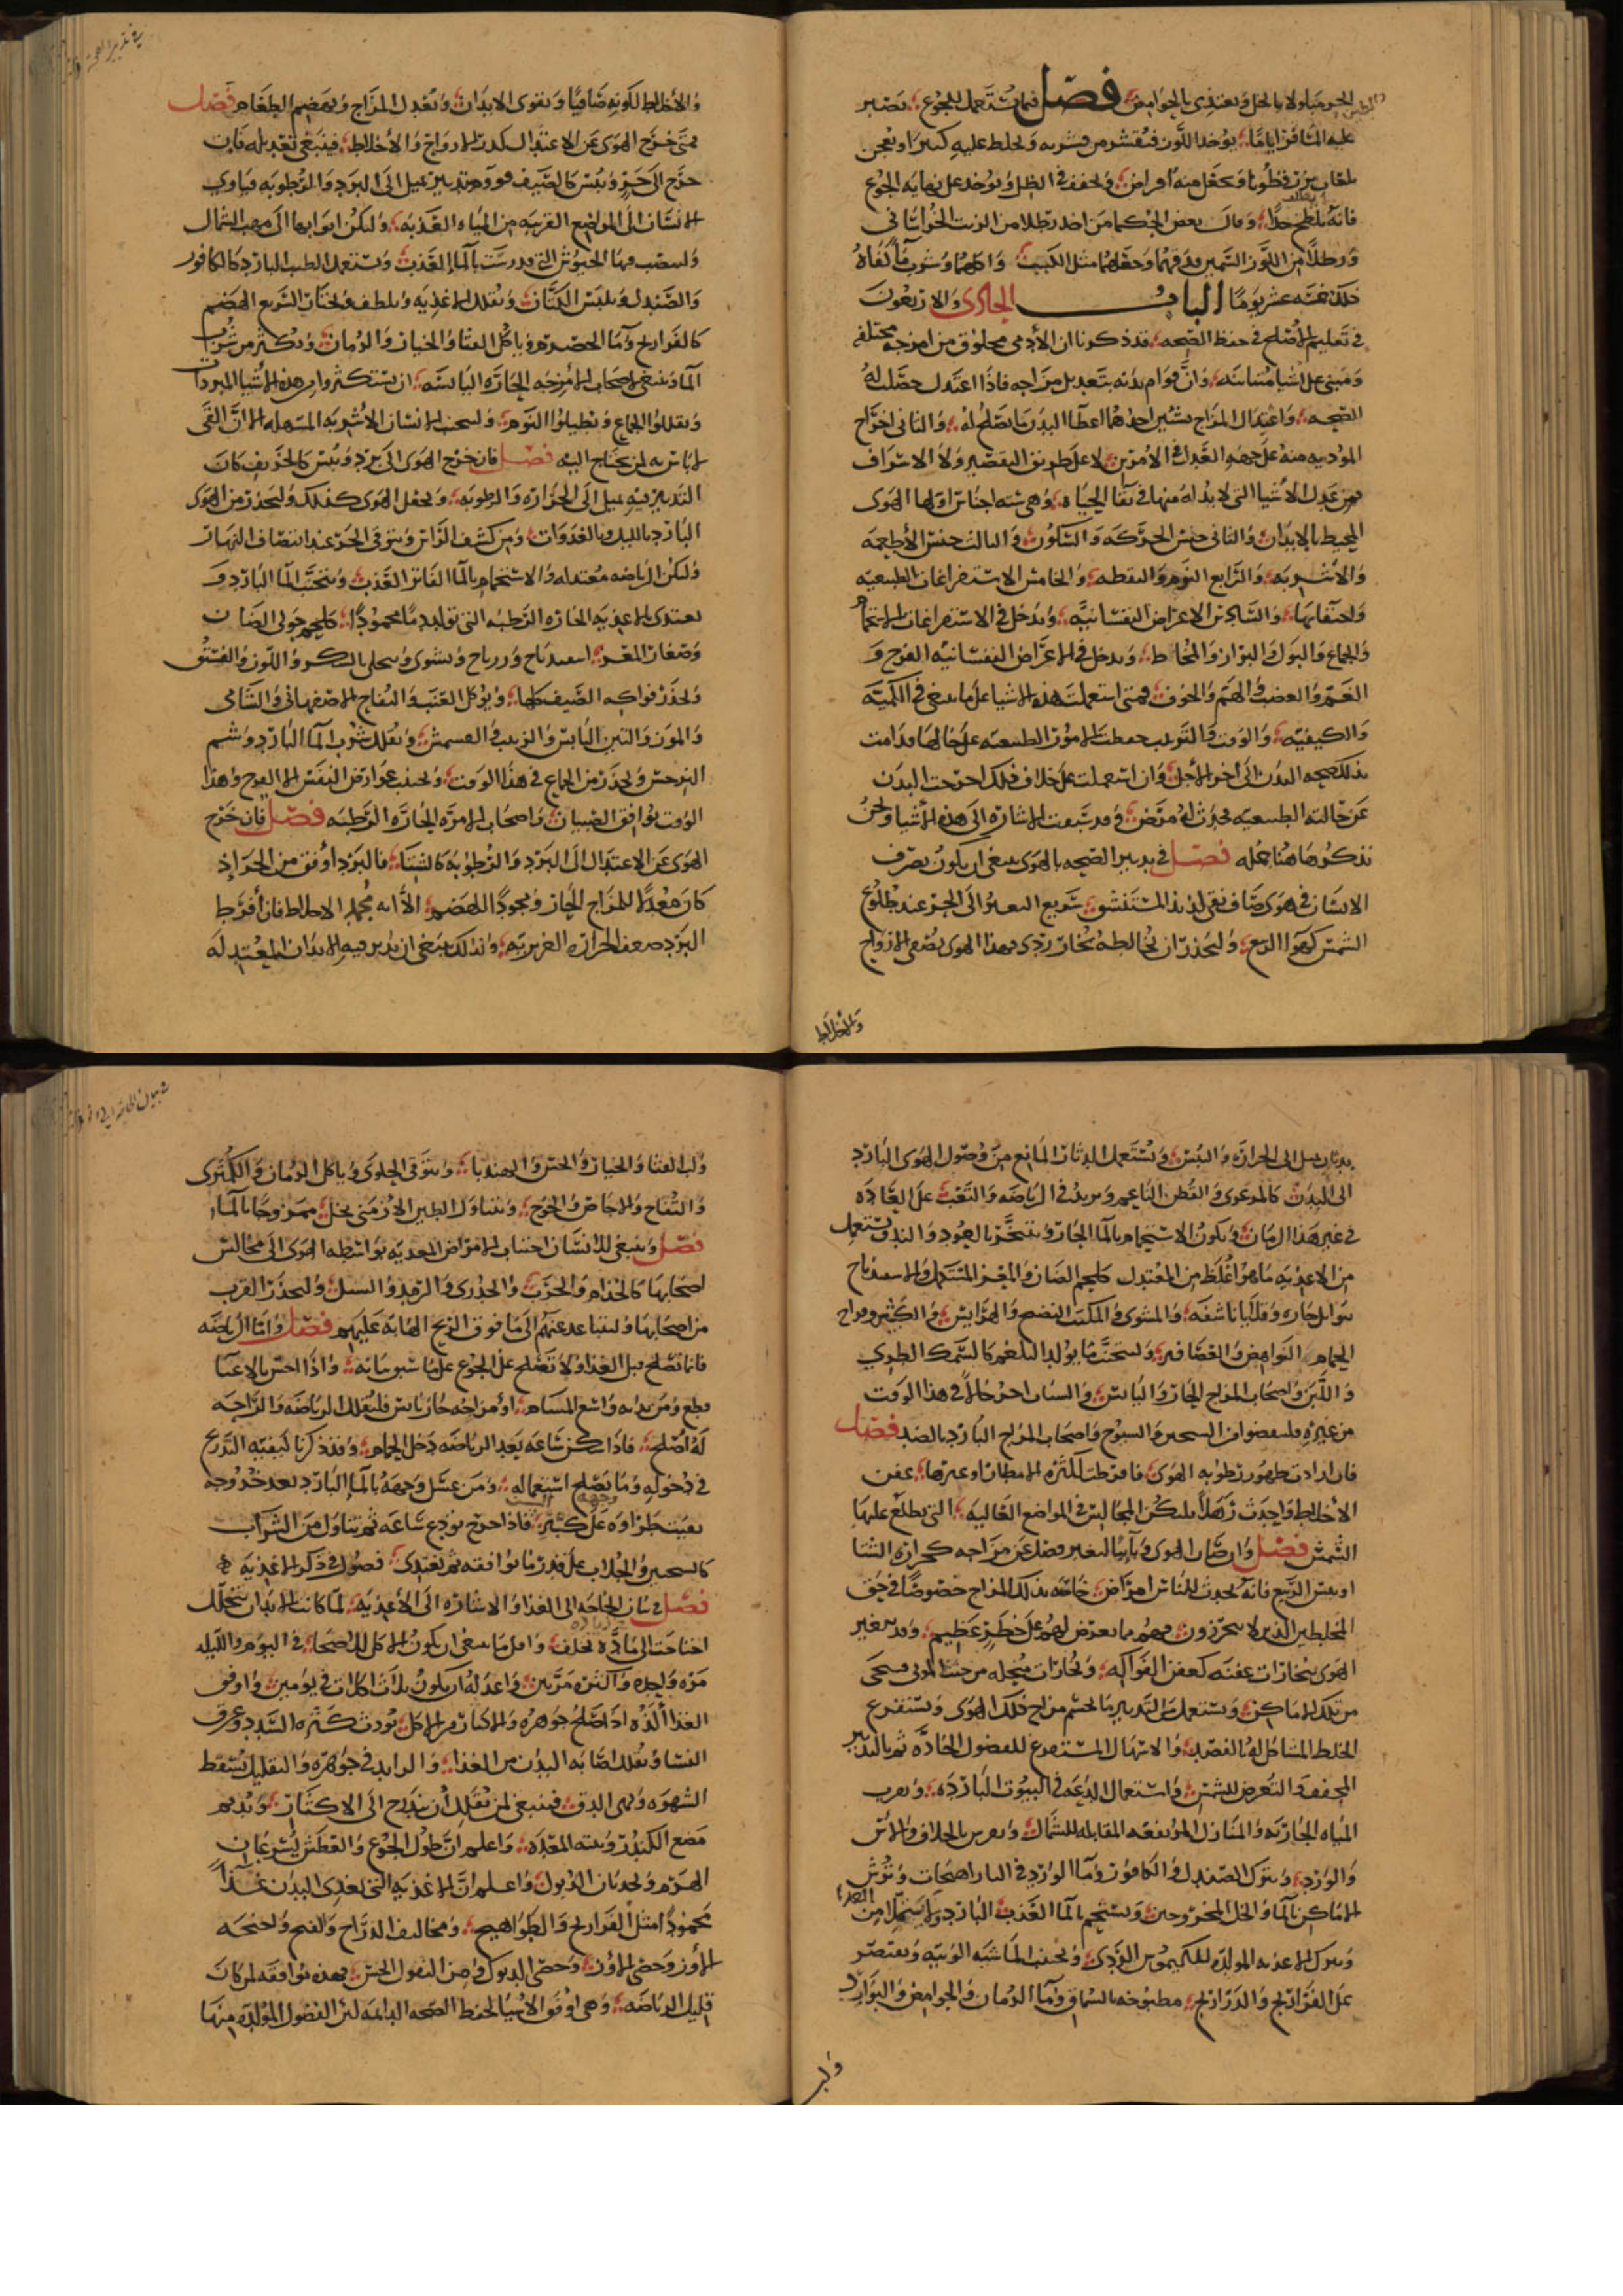 الخبز مبلولا بالخل ويغتذى بالحوامض فصل فيما يستعمل للجوع يصبر
عليه المسافر اياما يوخذ اللوز فيقشر من قشريه ويخلط عليه كثيرا ويعجن
بلعاب بزر قطونا ويجعل منه اقراص ويجفف في الظل ويوخذ على نهاية الجوع
فانه يلطخ جدا وقال بعض الحكما من اخذ رطلا من الزيت الخراساني
ورطلا من اللوز السمين ودقهما وجعلهما مثل الكبب واكلهما وشرب ما كفاه
ذلك خمسة عشر يوما الباب الحادى والاربعون
في تعليم الاصلح في حفظ الصحه قد ذكرنا ان الادمى مخلوق من امزجه مختلفه
ومبنى على اشيا متناسبه وان قوام بدنه بتعديل مزاجه فاذا اعتدل حصلت له
الصحه واعتدال المزاج بشيين احدهما اعطا البدن ما يصلح له والثاني اخراج
الموذيه منه على جهة القصد في الامرين لا على طريق التقصير ولا الاسراف
فمن عدل الاشيا التي لا بد له منها في بقا الحياه وهي سته اجناس اولها الهوى
المحيط بالابدان والثاني جنس الحركه والسكون والثالث جنس الاطعمه
والاشربه والرابع النوم واليقظه والخامس الاستفراغات الطبيعيه
واحتقانها والسادس الاعراض النفسانيه ويدخل في الاستفراغات الاستحمام
والجماع والبول والبراز والمخاط ويدخل في الاعراض النفسانيه الفرح و
الغم والغضب والهم والخوف فمتى استعملت هذه الاشيا على ما ينبغي في الكميه
والكيفيه والوقت والترتيب حفظت الامور الطبيعيه على حالها ودامت
بذلك صحه البدن الى اخر الاجل وان استعملت على خلاف ذلك اخرجت البدن
عن حالته الطبيعيه فحدث له مرض وقد سبقت الاشاره الى هذه الاشيا ونحن
نذكرها هنا جمله فصل في تدبير الصحه بالهوى ينبغي ان يكون تصرف
الانسان في هوى صاف نقى لذيذ المستنشق سريع التغير الى الحر عند طلوع
الشمس كهوا الربيع وليحذر ان يخالطه بخار ردى فهذا الهوى يصفى الارواح
والاخلاط
والاخلاط لكونه صافيا ويقوى الابدان ويعدل المزاج ويهضم الطعام فصل
فمتى خرج الهوى عن الاعتدال كدر الارواح والاخلاط فينبغي تعديله فان
خرج الى حر ويبس كالصيف قوومه تدبير يميل الى البرد والرطوبه فياوي
الانسان الى المواضع القريبه من المياه العذبه ولتكن ابوابها الى مهب الشمال
وينصب فيها الخيوش التي قد رست بالما العذب ويستعمل الطيب البارد كالكافور
والصندل ويلبس الكتان ويقلل الاغذيه ويلطف ويختار السريع الهضم
كالفراريج وما الحصرم وياكل القثا والخيار والرمان ويكثر من شرب
الما وينبغي لاصحاب الامزجه الحاره اليابسه ان يستكثروا من هذه الاشيا المبردات
ويقللوا الجماع ويطيلوا النوم وليجتنب الانسان الاشربه المسهله الا ان القى
لا باس به لمن يحتاج اليه فصل فان خرج الهوى الى برد ويبس كالخريف كان
التدبير فيه يميل الى الحراره والرطوبه ويجعل الهوى كذلك وليحذر من الهوى
البارد بالليل وبالغدوات ومن كشف الراس ويتوقى الحر عند انتصاف النهار
ولتكن الرياضه معتدله والاستحمام بالما الفاتر العذب ويتجنب الما البارد و
يغتذى الاغذيه الحاره الرطبه التي تولد دما محمودا كلحم حولى الضان
وصغار المعز اسفيدباج وزيرباج ويشوى ويتحلى بالسكر واللوز والفستق
وليحذر فواكه الصيف كلها ويوكل العنب والتفاح الاصفهاني والشامي
والموز والتين اليابس والزبيب والقسمش ويقلل شرب الما البارد وشم
النرجس وليحذر من الجماع في هذا الوقت ويجتنب عوارض النفس الا الفرح وهذا
الوقت يوافق الصبيان واصحاب الامزجه الحاره الرطبه فصل فان خرج
الهوى عن الاعتدال الى البرد والرطوبه كالشتا فالبرد اوفق من الحر اذ
كان معدلا للمزاج الحار ومجودا للهضم الا انه يجمد الاخلاط فان افرط
البرد ضعف الحراره الغريزيه ولذلك ينبغي ان يدبر فيه الابدان المعتدله
بتدبير يميل الى الحراره واليبس ويستعمل الدثار المانع من وصول الهوى البارد
الى البدن كالمرعزى والقطن الناعم ويزيد في الرياضه والتعب على العاده
في غير هذا الزمان ويكون الاستحمام بالما الحار ويتبخر بالعود والند ويستعمل
من الاغذيه ما هو اغلظ من المعتدل كلحم الضان والمعز المستكمل والاسفيدباج
بتوابل حاره وقلايا ناشفه والمشوى والمكتب النضيج والهرايس والكثير وفراخ
الحمام النواهض والعصافير وليتجنب ما يولد البلغم كالسمك الطري
واللبن واصحاب المزاج الحار واليابس والشبان احسن حالا في هذا الوقت
من غيره فصل
فان ازادت ظهور رطوبه الهوى فافرطت لكثره الامطار او غيرها عفن
الاخلاط واحدث ترهلا فلتكن المجالس في المواضع العاليه التي يطلع عليها
الشمس فصل وان صار الهوى وبائيا لتغير فصل عن مزاجه كحراره الشتا
او يبس الربيع فانه يحدث للناس امراض خاصه بذلك المزاج خصوصا في حق
المخلطين الذين لا يتحرزون فهم مما يعرض لهم على خطر عظيم وقد يتغير
الهوى ببخارات عفنه كعفن الفواكه وبخارات منحله من جثث الموتى فيتنحى
من تلك الاماكن ويستعمل من التدبير ما يحسم مزاج ذلك الهوى ويستفرغ
الخلط المشاكل له بالفصد والاسهال المستفرغ للفضول الحاده ثم بالتدبير
المجفف والتعرض للشمس واستعمال الدعه في البيوت البارده ويقرب
المياه الجاريه والمنازل المرتفعه المقابله للشمال ويفرش بالخلاف والاس
والورد ويترك الصندل والكافور وما الورد في الدار اصحنات ويرش
الاماكن بالما والخل الممزوجين ويستحم بالما العذب البارد
ويترك الاغذيه المولده للكيموس الردى ويجتنب الماشيه الوبيه ويقتصر
على الفراريج والدراريج مطبوخه بالسماق وما الرمان والحوامض والبوارد
ولب
ولب القثا والخيار والخس والهندبا ويتوقى الحلوى وياكل الرمان والكمثرى
والتفاح والاجاص والخوخ ويتناول الطين الارمنى بخل ممزوجا بالما
فصل وينبغي للانسان اجتناب الامراض المعديه بواسطه الهوى الى مجالس
اصحابها كالجذام والجرب والجدرى والرمد والسل وليحذر القرب
من اصحابها وليتباعد عنهم الى ما فوق الريح الهابه عليهم فصل واما الرياضه
فانما تصلح قبل الغذا ولا تصلح على الجوع على ما سبق بيانه واذا احس بالاعيا
قطع ومن بدنه واسع المسام او مزاجه حار يابس فليقلل الرياضه والراحه
له اصلح فاذا سكن ساعه بعد الرياضه دخل الحمام وقد ذكرنا كيفيه التدرج
في دخوله وما يصلح استعماله ومن غسل وجهه بالما البارد بعد خروجه
بقيت طراوه وجهه على كبر السن فاذا خرج تودع ساعه ثم تناول من الشراب
كالسكنجبين والجلاب على قدر ما يوافقه ثم يغتدى فصول في ذكر الاغذيه
فصل في بيان الحاجه الى الغذا والاشاره الى الاغذيه لما كانت الابدان تتحلل
احتاجت الى ماده تخلف واقل ما ينبغي ان يكون الاكل للاصحا في اليوم والليله
مره واحده واكثره مرتين واعدله ان يكون ثلاث اكلات في يومين واوفق
الغذا الذه اذا صلح جوهره والاكثار من الاكل يورث كثره السدد وعرق
النسا وتقلل اصابه البدن من الغذا والزايد في جوهره والتقليل يسقط
الشهوه وينهى الدق فينبغي لمن تقلل ان يتدرج الى الاكثار ويديم
مضغ الكندر وتنبيه المعده واعلم ان طول الجوع والعطش يسرعان
الهرم ويحدثان الذبول واعلم ان الاغذيه التي تغدى البدن غذا
محمودا مثل الفراريج والطياهيج ومخاليف الدراج والقبج واجنحه
الاوز وخصى الاوز وخصى الديوك ومن البقول الخس فهذه توافقه لمن كان
قليل الرياضه وهي اوفق الاشيا لحفظ الصحه الدايمه لان الفضول المولده منها